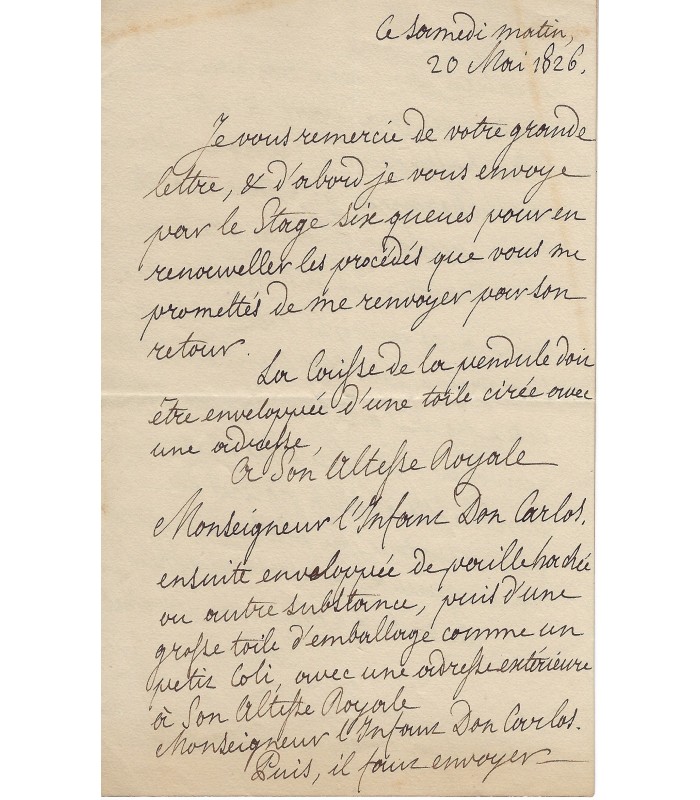 Ce samedi matin,
20 Mai 1826.
Je vous remercie de votre grande
lettre, & d'abord je vous envoye
par le Stage six queues pour en
renouveller les procédés que vous me
promettés de me renvoyer par son
retour.
La Caisse de la pendule doit
être enveloppée d'une toile cirée avec
une adresse,
A Son Altesse Royale
Monseigneur l'Infant Don Carlos.
ensuite enveloppée de paille hachée
ou autre substance, puis d'une
grosse toile d'emballage comme un
petit Coli, avec une adresse extérieure
à Son Altesse Royale
Monseigneur l'Infant Don Carlos.
Puis, il faut envoyer